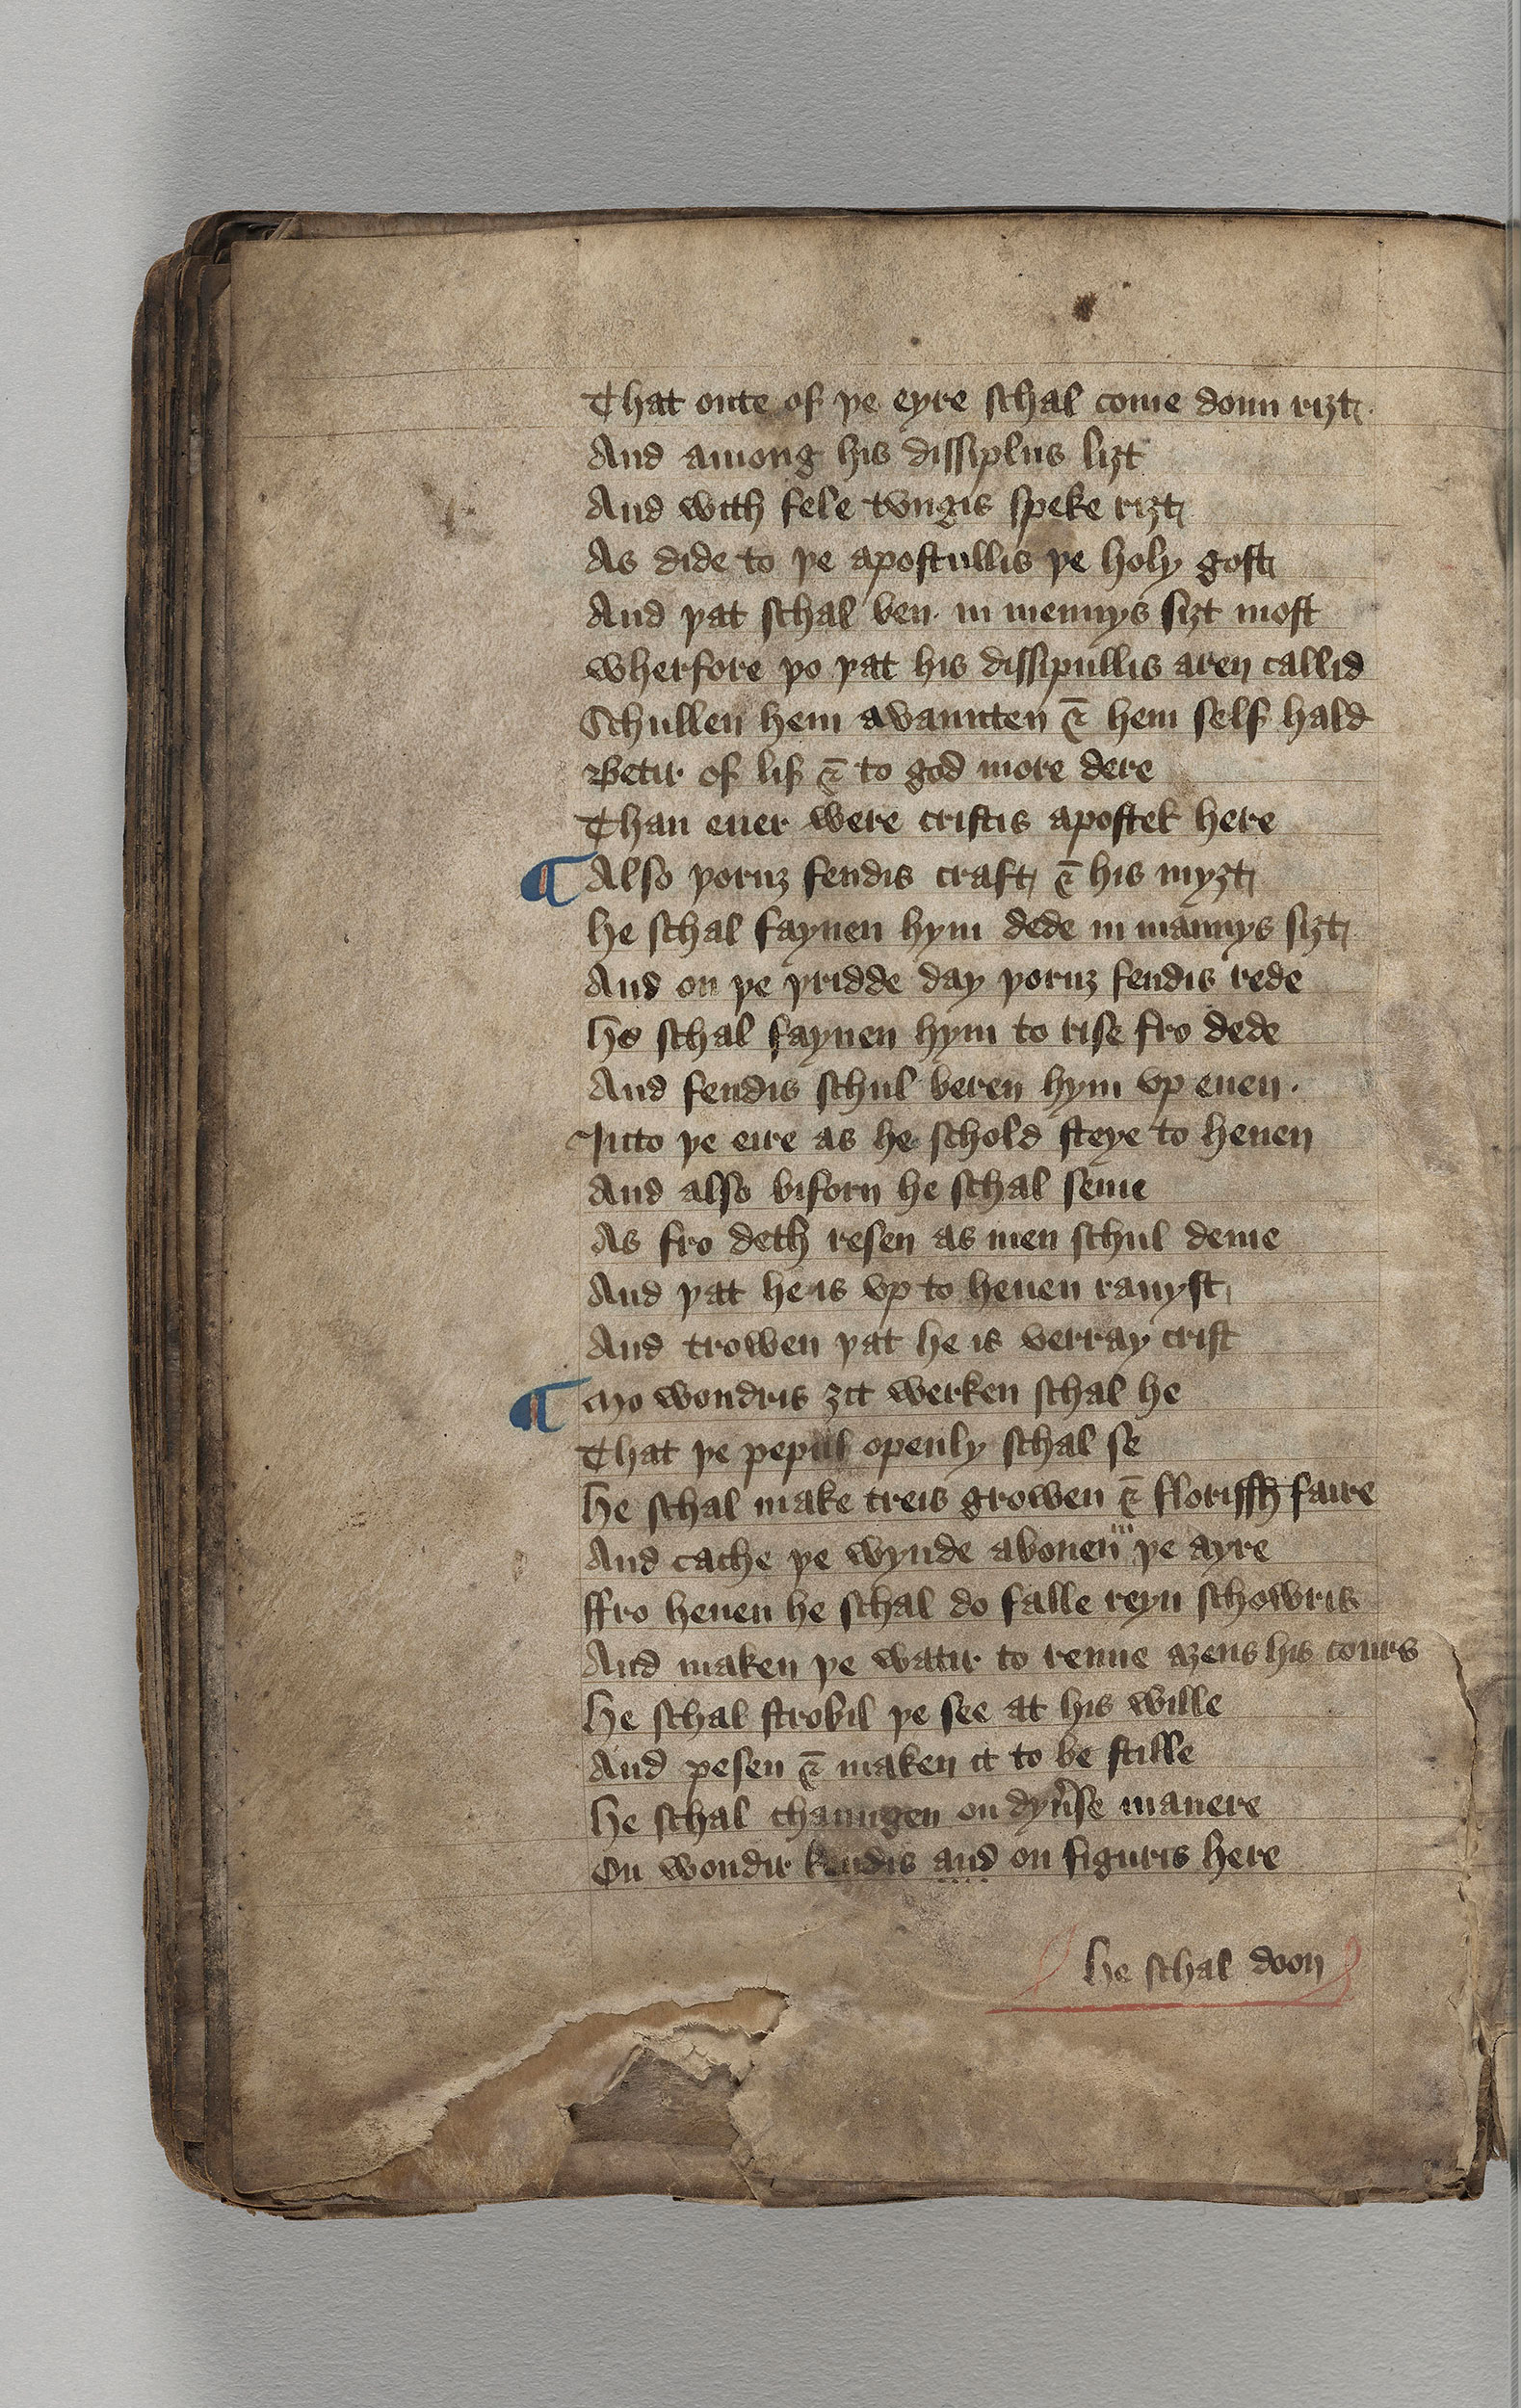 That oute of þe eyre schal come doun riȝt
And among his dissiplus liȝt
And with fele tvngis speke riȝt
As dide to þe apostullis þe holy gost
And þat schal ben in mennys siȝt most
wherfore þo þat his dissipullis aren callid
Schullen hem avaunten & hem self hald
Betir of lif & to god more dere
Than euer were cristis apostel here
¶ Also þoruȝ fendis craft & his myȝt
he schal faynen hym dede in mannys siȝt
And on þe þridde day þoruȝ fendis rede
He schal faynen hym to rise fro dede
And fendis schul beren hym vp euen.
Into þe eire as he schold steye to heuen
And also biforn he schal seme
As fro deth resen as men schul deme
And þat he is vp to heuen rauyst
And trowen þat he is verray crist
¶ Mo wondris ȝit werken schal he
That þe pepul openly schal se
He schal make treis growen & florissh faire
And cache þe wynde abouen þe ayre
ffro heuen he schal do falle reyn schowris
And maken þe watir to renne aȝens his cours
He schal strobil þe see at his wille
And pesen & maken it to be stille
He schal chaungen on dyuse manere
On wondir kindis and on figuris here
He schal doon